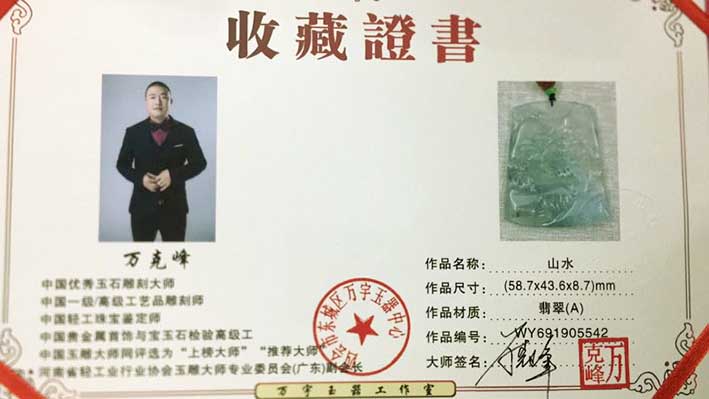 收藏證書
万克峰
中国优秀玉石雕刻大师
中国一级/高级工艺品雕刻师
中国轻工珠宝鉴定师
中国贵金属首饰与宝玉石检验高级工
中国玉雕大师网评选为“上榜大师”“推荐大师”
河南省轻工业行业协会玉雕大师专业委员会(广东)副会长
四会市东城区万宇玉器中心
作品名称: 山水
作品尺寸: (58.7x43.6x8.7)mm
作品材质: 翡翠(A)
作品编号: WY691905542
大师签名:
万克峰
万宇玉器工作室